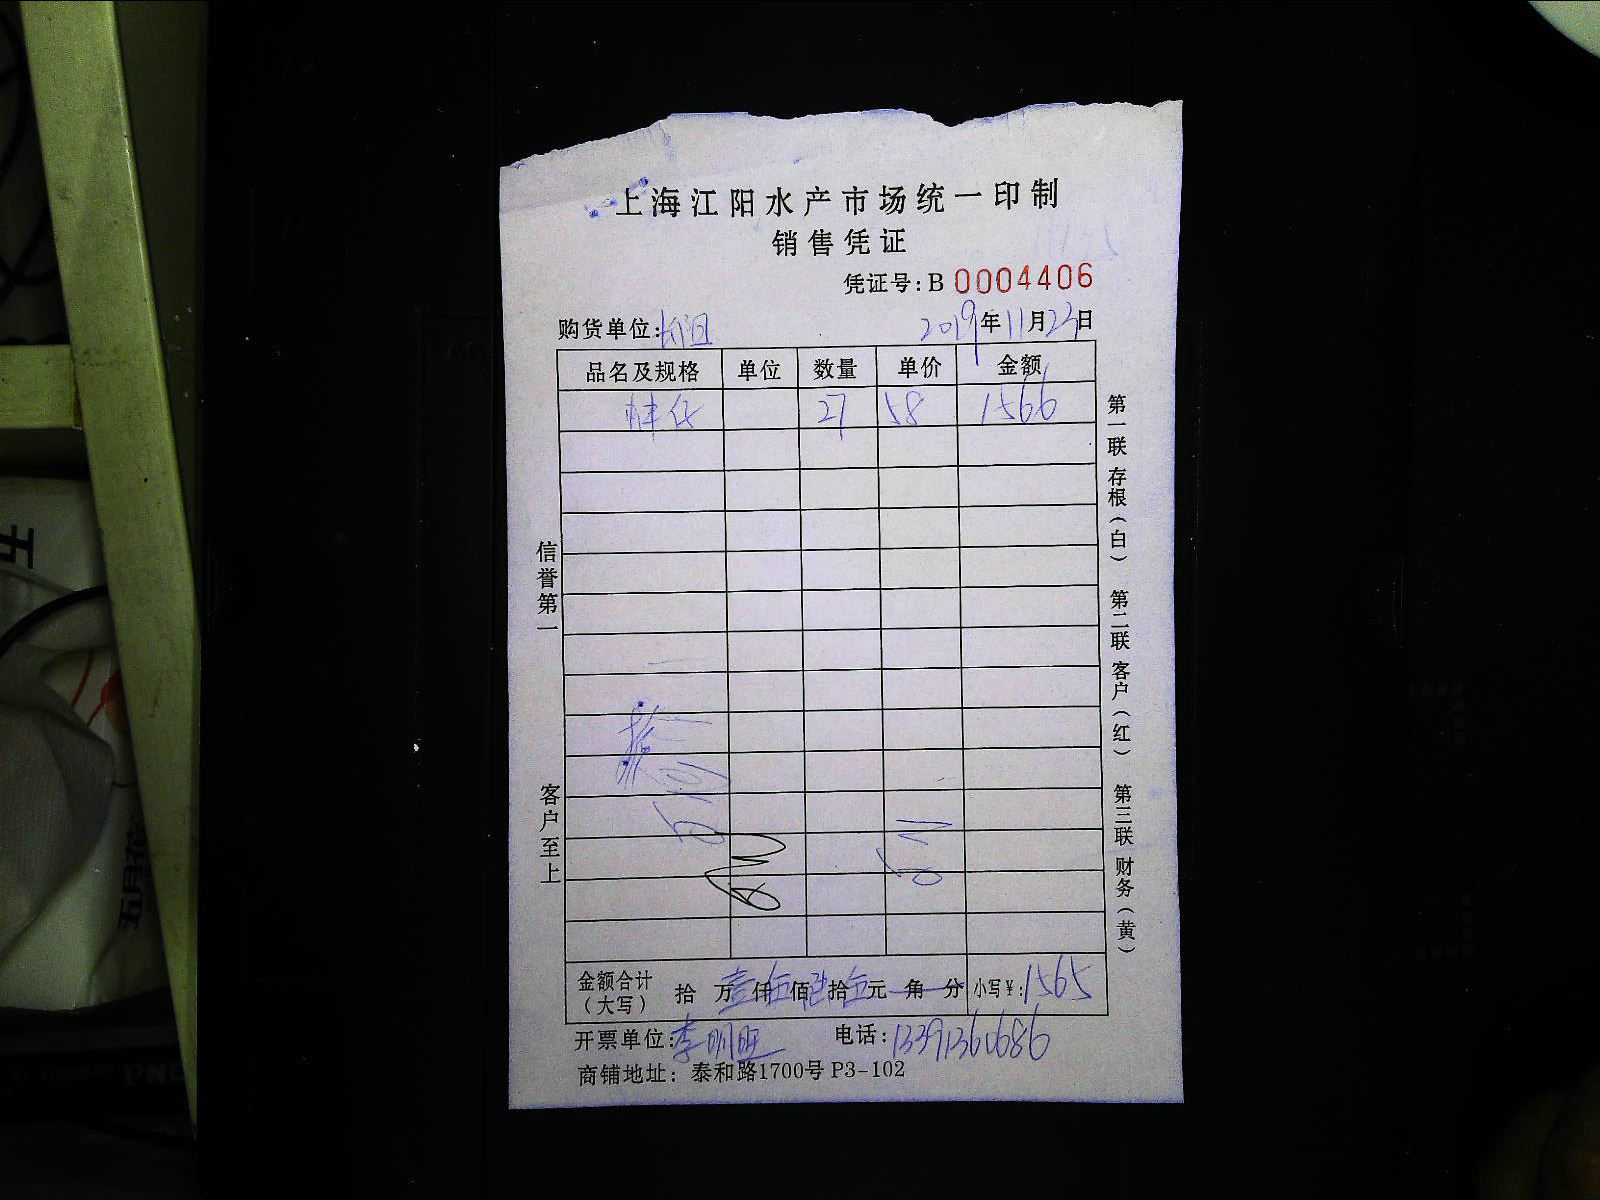 上海江阳水产市场统一印制
销售凭证
凭证号:B 0004406
购货单位: 2019年11月23日
品名及规格 单位 数量 单价 金额
27 58 1566
信誉第一
客户至上
第一联 存根(白) 第二联 客户(红) 第三联 财务(黄)
金额合计(大写) 拾 万壹仟伍佰陆拾伍元 角 分 小写¥:1565
开票单位:李明旺 电话:13391360686
商铺地址: 泰和路1700号 P3-102
五月